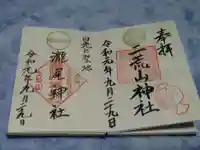 奉拝
二荒山神社
令和元年九月二十九日
日光の聖地
瀧尾神社
令和元年九月二十九日